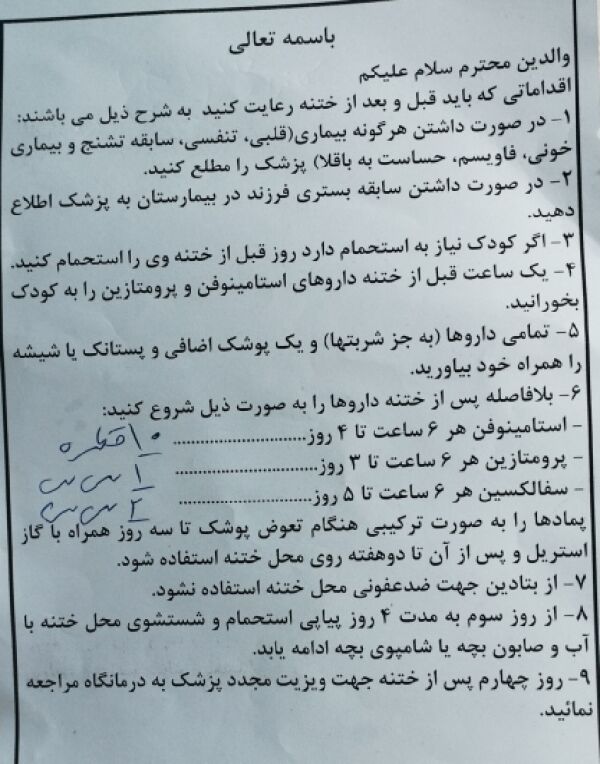 باسمه تعالی
والدین محترم سلام علیکم
اقداماتی که باید قبل و بعد از ختنه رعایت کنید به شرح ذیل می باشند:
۱- در صورت داشتن هرگونه بیماری(قلبی، تنفسی، سابقه تشنج و بیماری
خونی، فاویسم، حساست به باقلا) پزشک را مطلع کنید.
۲- در صورت داشتن سابقه بستری فرزند در بیمارستان به پزشک اطلاع
دهید.
۳- اگر کودک نیاز به استحمام دارد روز قبل از ختنه وی را استحمام کنید.
۴- یک ساعت قبل از ختنه داروهای استامینوفن و پرومتازین را به کودک
بخورانید.
۵- تمامی داروها (به جز شربتها) و یک پوشک اضافی و پستانک یا شیشه
را همراه خود بیاورید.
۶- بلافاصله پس از ختنه داروها را به صورت ذیل شروع کنید:
- استامینوفن هر ۶ ساعت تا ۴ روز............................. ۱۰ قطره
- پرومتازین هر ۶ ساعت تا ۳ روز............................. ۱ سی سی
- سفالکسین هر ۶ ساعت تا ۵ روز............................. ۲ سی سی
پمادها را به صورت ترکیبی هنگام تعوض پوشک تا سه روز همراه با گاز
استریل و پس از آن تا دوهفته روی محل ختنه استفاده شود.
۷- از بتادین جهت ضدعفونی محل ختنه استفاده نشود.
۸- از روز سوم به مدت ۴ روز پیاپی استحمام و شستشوی محل ختنه با
آب و صابون بچه یا شامپوی بچه ادامه یابد.
۹- روز چهارم پس از ختنه جهت ویزیت مجدد پزشک به درمانگاه مراجعه
نمائید.